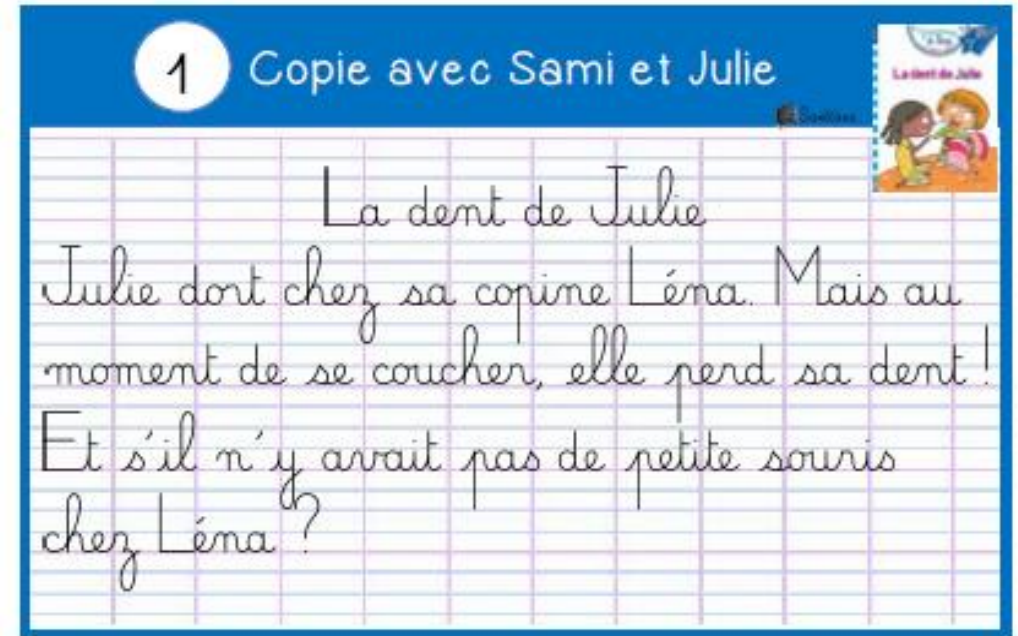 1 Copie avec Sami et Julie
La dent de Julie
La dent de Julie
Julie dort chez sa copine Léna. Mais au
moment de se coucher, elle perd sa dent !
Et s'il n'y avait pas de petite souris
chez Léna ?